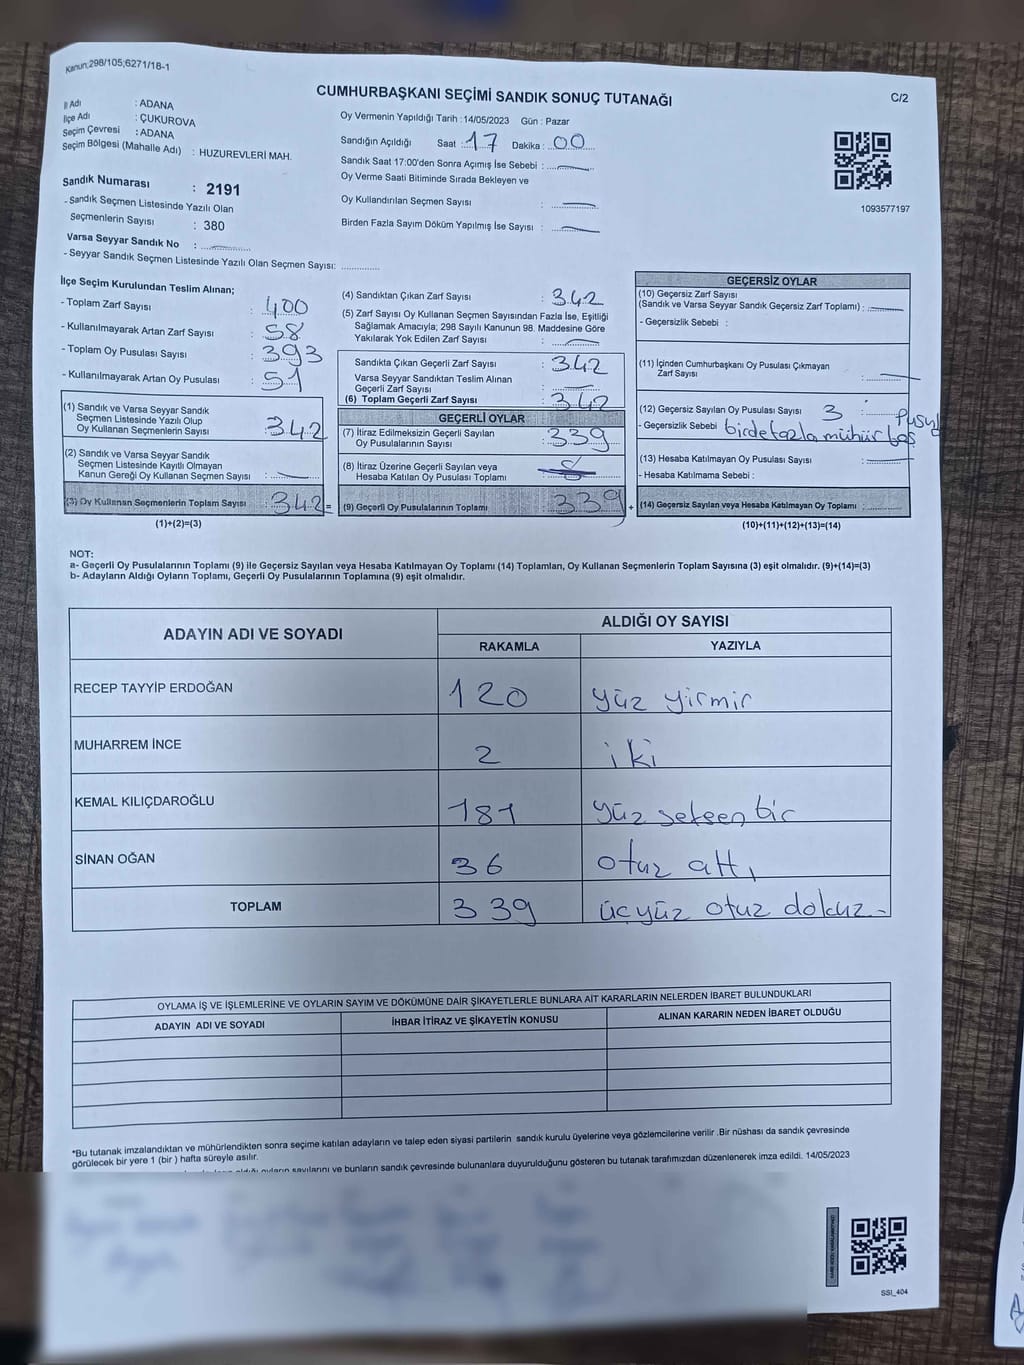 Kanun;298/105;6271/18-1
CUMHURBAŞKANI SEÇİMİ SANDIK SONUÇ TUTANAĞI
C/2
İl Adı : ADANA
İlçe Adı : ÇUKUROVA
Seçim Çevresi : ADANA
Seçim Bölgesi (Mahalle Adı) : HUZUREVLERİ MAH.
Sandık Numarası : 2191
- Sandık Seçmen Listesinde Yazılı Olan
Seçmenlerin Sayısı : 380
Varsa Seyyar Sandık No :
- Seyyar Sandık Seçmen Listesinde Yazılı Olan Seçmen Sayısı:
Oy Vermenin Yapıldığı Tarih :14/05/2023 Gün : Pazar
Sandığın Açıldığı Saat : 17 Dakika : 00
Sandık Saat 17:00'den Sonra Açımış İse Sebebi :
Oy Verme Saati Bitiminde Sırada Bekleyen ve
Oy Kullandırılan Seçmen Sayısı :
Birden Fazla Sayım Döküm Yapılmış İse Sayısı :
1093577197
İlçe Seçim Kurulundan Teslim Alınan;
- Toplam Zarf Sayısı : 400
- Kullanılmayarak Artan Zarf Sayısı : 58
- Toplam Oy Pusulası Sayısı : 393
- Kullanılmayarak Artan Oy Pusulası : 51
(1) Sandık ve Varsa Seyyar Sandık
Seçmen Listesinde Yazılı Olup
Oy Kullanan Seçmenlerin Sayısı : 342
(2) Sandık ve Varsa Seyyar Sandık
Seçmen Listesinde Kayıtlı Olmayan
Kanun Gereği Oy Kullanan Seçmen Sayısı :
(3) Oy Kullanan Seçmenlerin Toplam Sayısı : 342 =
(1)+(2)=(3)
(4) Sandıktan Çıkan Zarf Sayısı : 342
(5) Zarf Sayısı Oy Kullanan Seçmen Sayısından Fazla İse, Eşitliği
Sağlamak Amacıyla; 298 Sayılı Kanunun 98. Maddesine Göre
Yakılarak Yok Edilen Zarf Sayısı :
Sandıkta Çıkan Geçerli Zarf Sayısı : 342
Varsa Seyyar Sandıktan Teslim Alınan
Geçerli Zarf Sayısı :
(6) Toplam Geçerli Zarf Sayısı : 342
GEÇERLİ OYLAR
(7) İtiraz Edilmeksizin Geçerli Sayılan
Oy Pusulalarının Sayısı : 339
(8) İtiraz Üzerine Geçerli Sayılan veya
Hesaba Katılan Oy Pusulası Toplamı :
(9) Geçerli Oy Pusulalarının Toplamı : 339 +
GEÇERSİZ OYLAR
(10) Geçersiz Zarf Sayısı
(Sandık ve Varsa Seyyar Sandık Geçersiz Zarf Toplamı) :
- Geçersizlik Sebebi :
(11) İçinden Cumhurbaşkanı Oy Pusulası Çıkmayan
Zarf Sayısı :
(12) Geçersiz Sayılan Oy Pusulası Sayısı 3 :
- Geçersizlik Sebebi birde fazla mühür baş
(13) Hesaba Katılmayan Oy Pusulası Sayısı :
- Hesaba Katılmama Sebebi :
(14) Geçersiz Sayılan veya Hesaba Katılmayan Oy Toplamı :
(10)+(11)+(12)+(13)=(14)
NOT:
a- Geçerli Oy Pusulalarının Toplamı (9) ile Geçersiz Sayılan veya Hesaba Katılmayan Oy Toplamı (14) Toplamları, Oy Kullanan Seçmenlerin Toplam Sayısına (3) eşit olmalıdır. (9)+(14)=(3)
b- Adayların Aldığı Oyların Toplamı, Geçerli Oy Pusulalarının Toplamına (9) eşit olmalıdır.
ADAYIN ADI VE SOYADI ALDIĞI OY SAYISI
RAKAMLA YAZIYLA
RECEP TAYYİP ERDOĞAN 120 yüz yirmir
MUHARREM İNCE 2 iki
KEMAL KILIÇDAROĞLU 181 yüz seksen bir
SİNAN OĞAN 36 otuz altı
TOPLAM 339 üçyüz otuz dokuz -
OYLAMA İŞ VE İŞLEMLERİNE VE OYLARIN SAYIM VE DÖKÜMÜNE DAİR ŞİKAYETLERLE BUNLARA AİT KARARLARIN NELERDEN İBARET BULUNDUKLARI
ADAYIN ADI VE SOYADI İHBAR İTİRAZ VE ŞİKAYETİN KONUSU ALINAN KARARIN NEDEN İBARET OLDUĞU
*Bu tutanak imzalandıktan ve mühürlendikten sonra seçime katılan adayların ve talep eden siyasi partilerin sandık kurulu üyelerine veya gözlemcilerine verilir .Bir nüshası da sandık çevresinde
görülecek bir yere 1 (bir ) hafta süreyle asılır.
oyların sayılarını ve bunların sandık çevresinde bulunanlara duyurulduğunu gösteren bu tutanak tarafımızdan düzenlenerek imza edildi. 14/05/2023
SSI_404